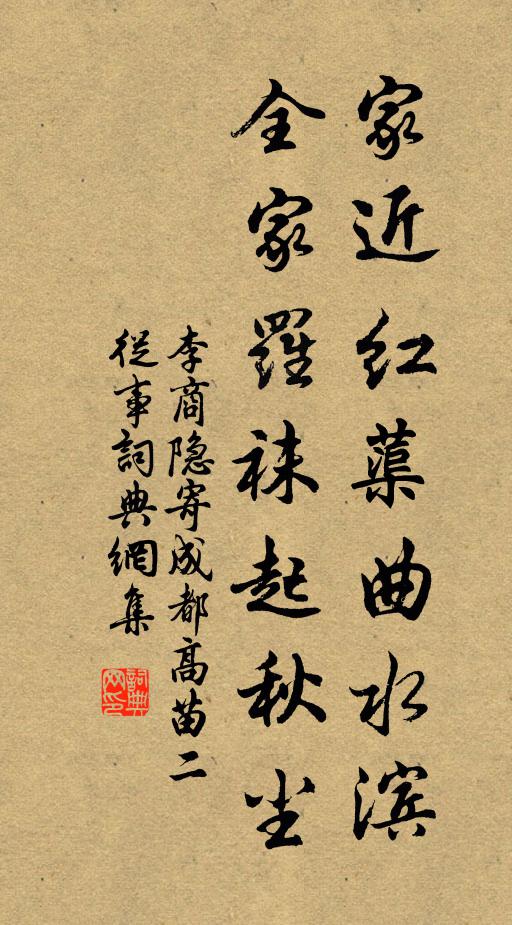 家近红蕖曲水滨
全家羅袜起秋尘
李商隐寄成都高苗二
從事詞典網集
詞典
网印